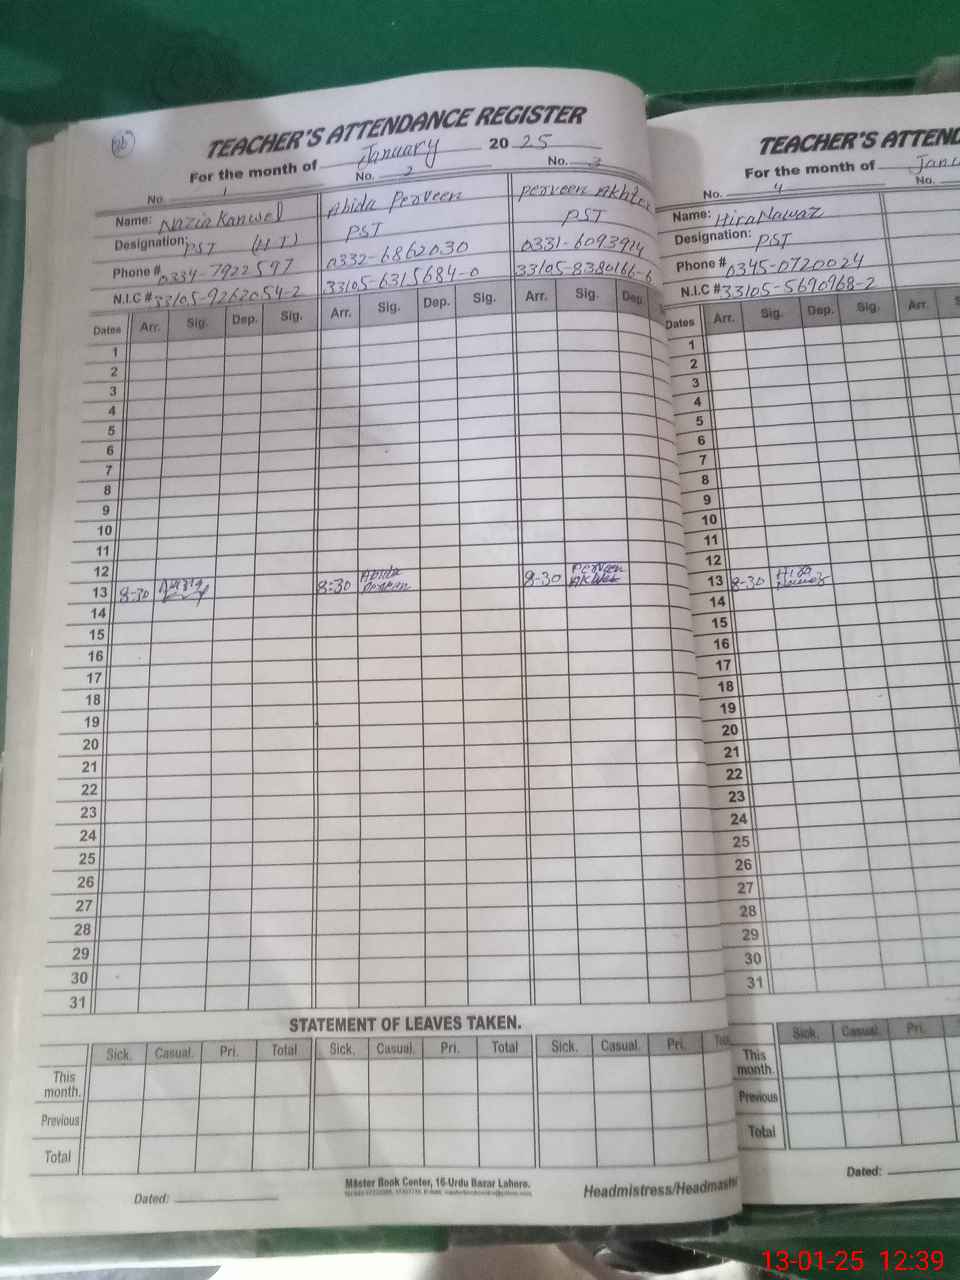 TEACHER'S ATTENDANCE REGISTER
For the month of January 2025
No. 1 No. 2 No. 3
Name: Nazia Kanwel Abida Perveen Perveen Akhter
Designation: PST (H T) PST PST
Phone # 0334-7922597 0332-6862030 0331-6093914
N.I.C # 33105-9262054-2 33105-6315684-0 33105-8380166-6
Dates Arr. Sig. Dep. Sig. Arr. Sig. Dep. Sig. Arr. Sig. Dep.
1
2
3
4
5
6
7
8
9
10
11
12
13 8-30 Nazia 8-30 Abida Perveen 8-30 Perveen Akhter
14
15
16
17
18
19
20
21
22
23
24
25
26
27
28
29
30
31
STATEMENT OF LEAVES TAKEN.
Sick. Casual. Pri. Total Sick. Casual. Pri. Total Sick. Casual. Pri.
This month.
Previous
Total
Dated:
Master Book Center, 16-Urdu Bazar Lahore.
Headmistress/Headmaste
TEACHER'S ATTEN
For the month of Janu
No. 4 No.
Name: Hira Nawaz
Designation: PST
Phone # 0345-0720024
N.I.C # 33105-5690968-2
Dates Arr. Sig. Dep. Sig. Arr. S
1
2
3
4
5
6
7
8
9
10
11
12
13 8-30 Hira Nawaz
14
15
16
17
18
19
20
21
22
23
24
25
26
27
28
29
30
31
Sick. Casual. Pri.
This month.
Previous
Total
Dated:
13-01-25 12:39